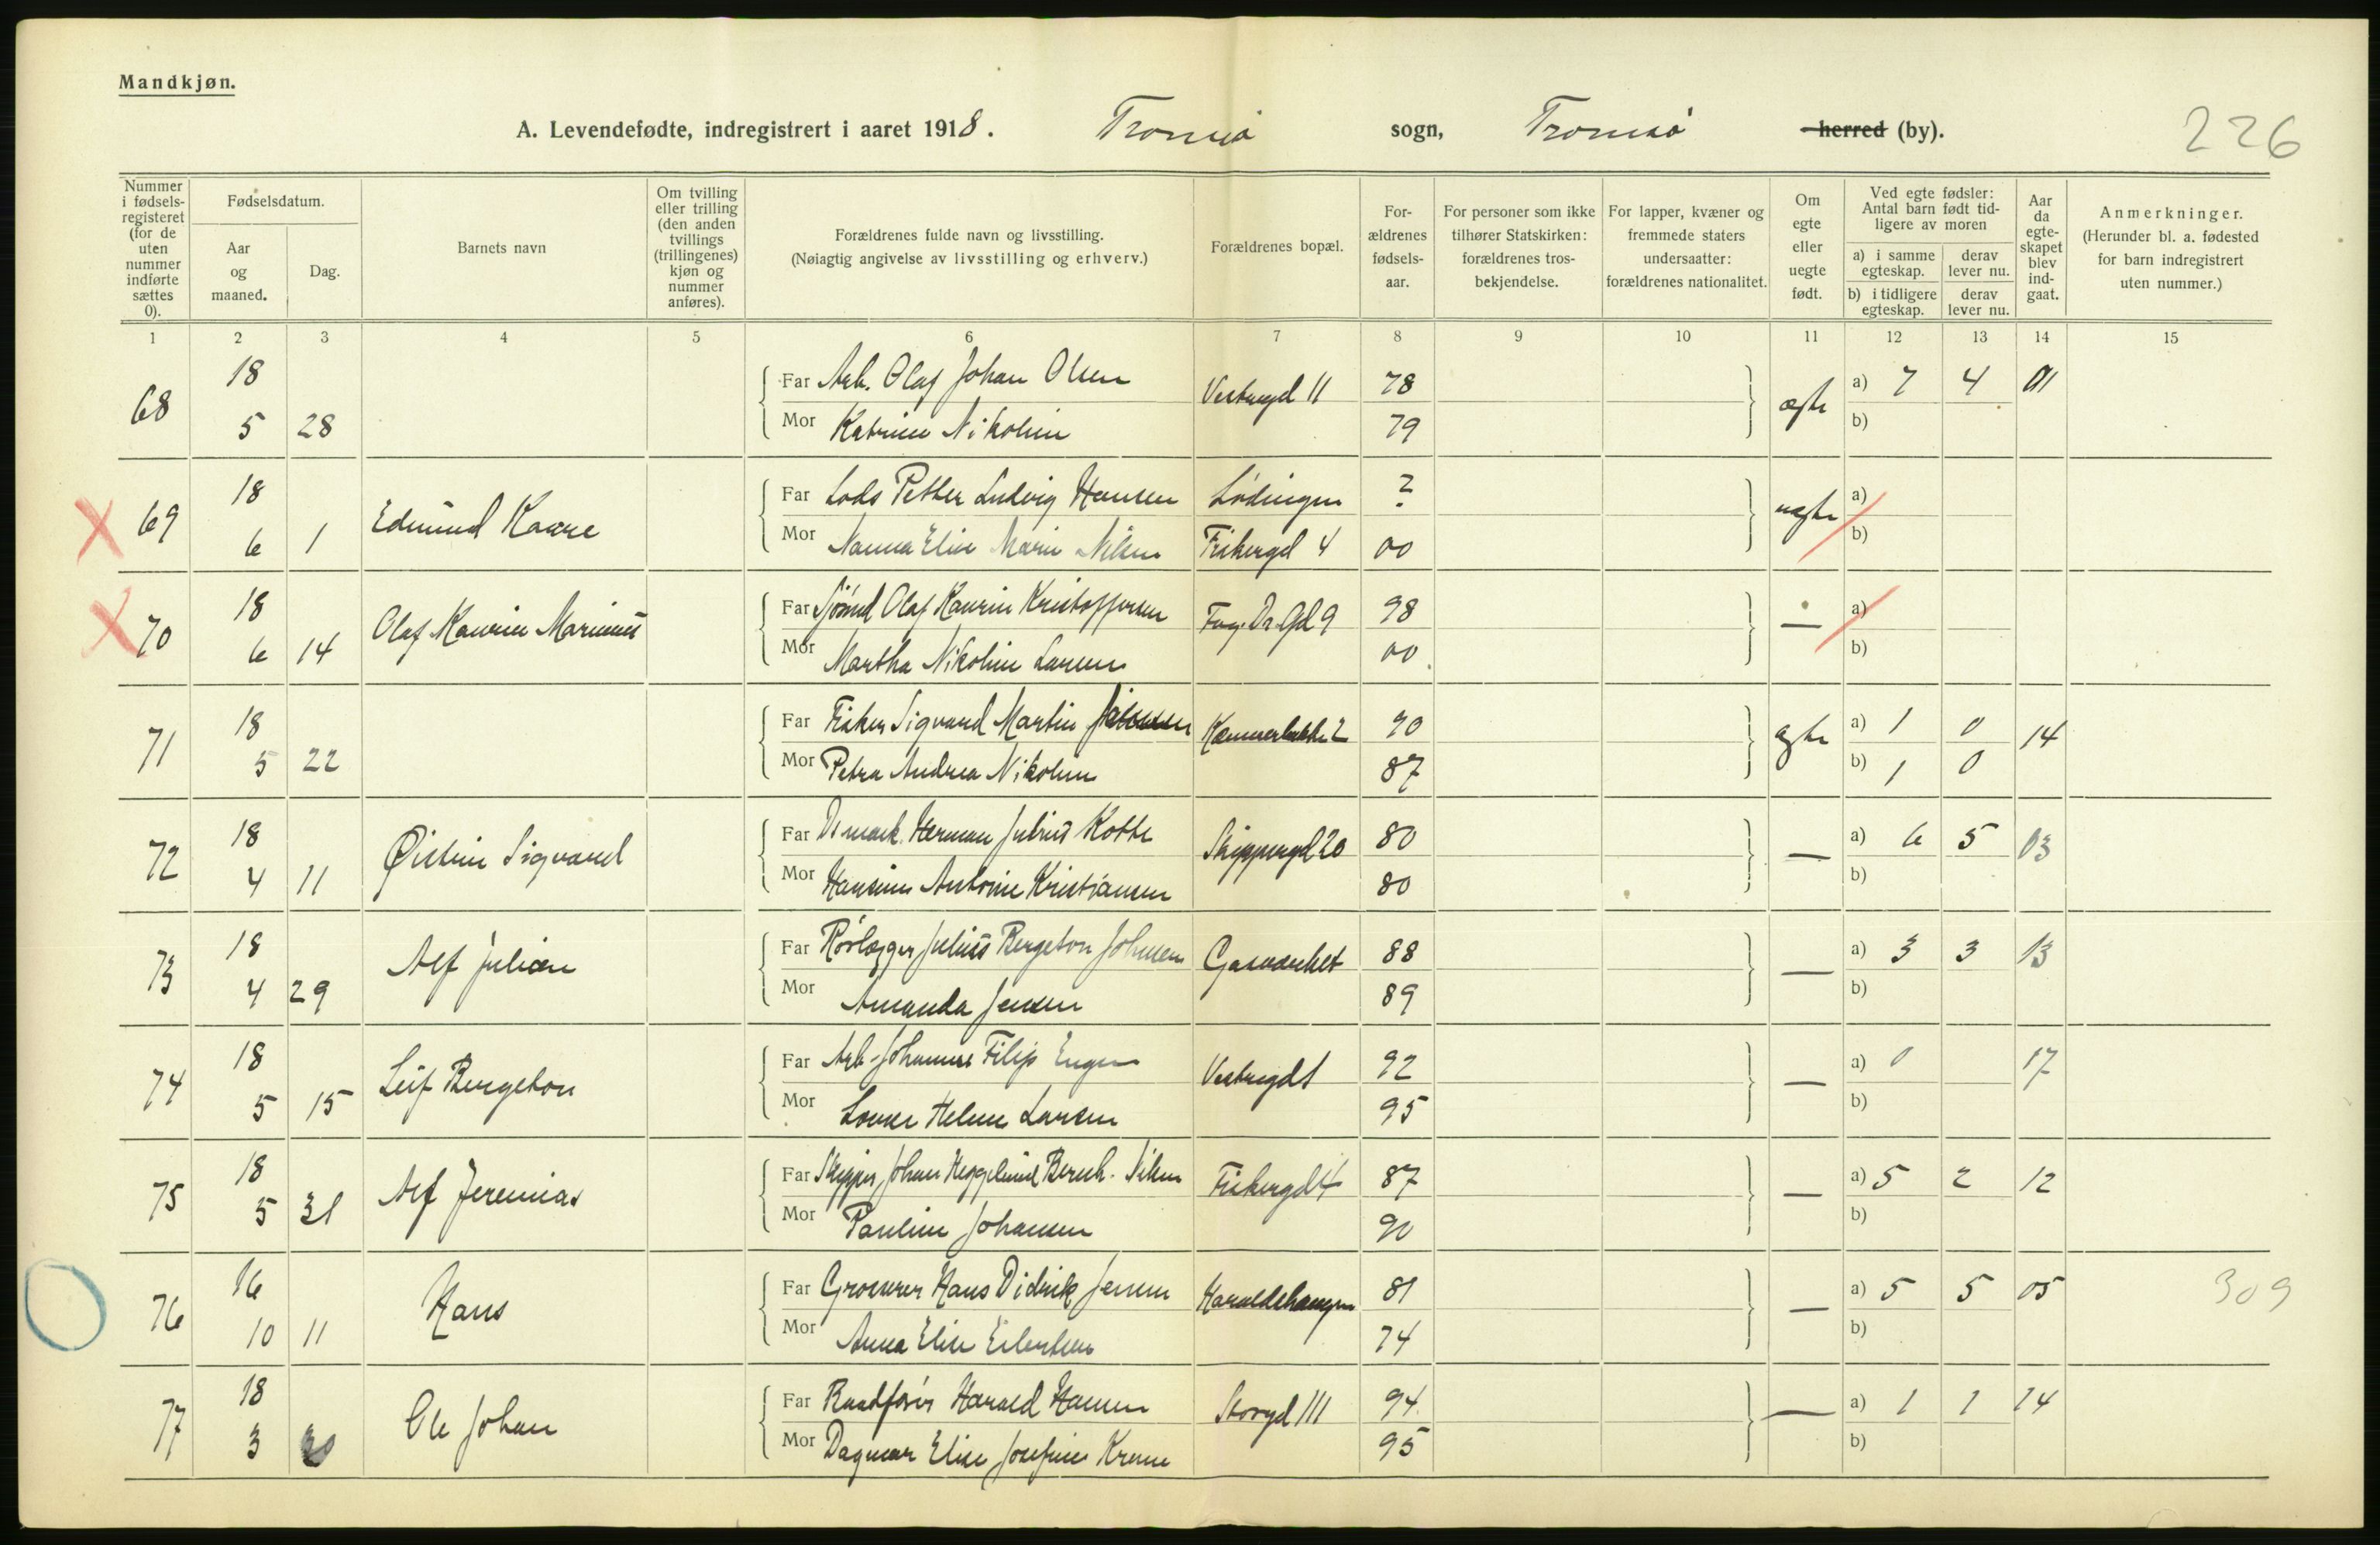 Mandkjøn.
A. Levendefødte, indregistrert i aaret 1918. Tromsø sogn, Tromsø herred (by). 226
Nummer i fødsels-registeret (for de uten nummer indførte sættes 0).
Fødselsdatum.
Aar og maaned.
Dag.
Barnets navn
Om tvilling eller trilling (den anden tvillings (trillingenes) kjøn og nummer anføres).
Forældrenes fulde navn og livsstilling.
(Nøiagtig angivelse av livsstilling og erhverv.)
Forældrenes bopæl.
For-ældrenes fødsels-aar.
For personer som ikke tilhører Statskirken: forældrenes tros-bekjendelse.
For lapper, kvæner og fremmede staters undersaatter: forældrenes nationalitet.
Om egte eller uegte født.
Ved egte fødsler: Antal barn født tid-ligere av moren
a) i samme egteskap.
derav lever nu.
b) i tidligere egteskap.
derav lever nu.
Aar da egte-skapet blev ind-gaat.
Anmerkninger.
(Herunder bl. a. fødested for barn indregistrert uten nummer.)
1 2 3 4 5 6 7 8 9 10 11 12 13 14 15
68 18 Far Arb. Olaf Johan Olsen Vestregd 11 78 egte a) 7 4 01
5 28 Mor Katrine Nikoline 79 b)
69 18 Edmund Kaare Far Lods Petter Ludvig Hansen Lødingen ? uegte a)
6 1 Mor Nanna Elise Marie Nilsen Fiskergd 4 00 b)
70 18 Olaf Kaurin Marinius Far Sjömd Olaf Kaurin Kristoffersen Fog. Dr. Gd 9 98 — a)
6 14 Mor Martha Nikoline Larsen 00 b)
71 18 Far Fisker Sigvard Martin 90 egte a) 1 0 14
5 22 Mor Petra Andrea Nikoline 87 b) 1 0
72 18 Øistein Sigvard Far Herman Julius Kotte Skippergd 20 80 — a) 6 5 03
4 11 Mor Hansine Antonie Kristiansen 80 b)
73 18 Alf Julian Far Rörlægger Julius Bergeton Johnsen Gasverket 88 — a) 3 3 13
4 29 Mor Amanda Jensen 89 b)
74 18 Leif Bergeton Far Arb. Johannes Filip Engen Vestregd 1 92 — a) 0 17
5 15 Mor Lovise Helene Larsen 95 b)
75 18 Alf Jeremias Far Skipper Johan Heggelund Bernh. Nilsen Fiskergd 4 87 — a) 5 2 12
5 31 Mor Pauline Johansen 90 b)
76 16 Hans Far Grosserer Hans Didrik Jensen Haraldshaugen 81 — a) 5 5 05 309
10 11 Mor Anna Elise Eilertsen 74 b)
77 18 Ole Johan Far Harald Hansen Storgd 111 94 — a) 1 1 14
3 30 Mor Dagmar Elise Josefine Krane 95 b)